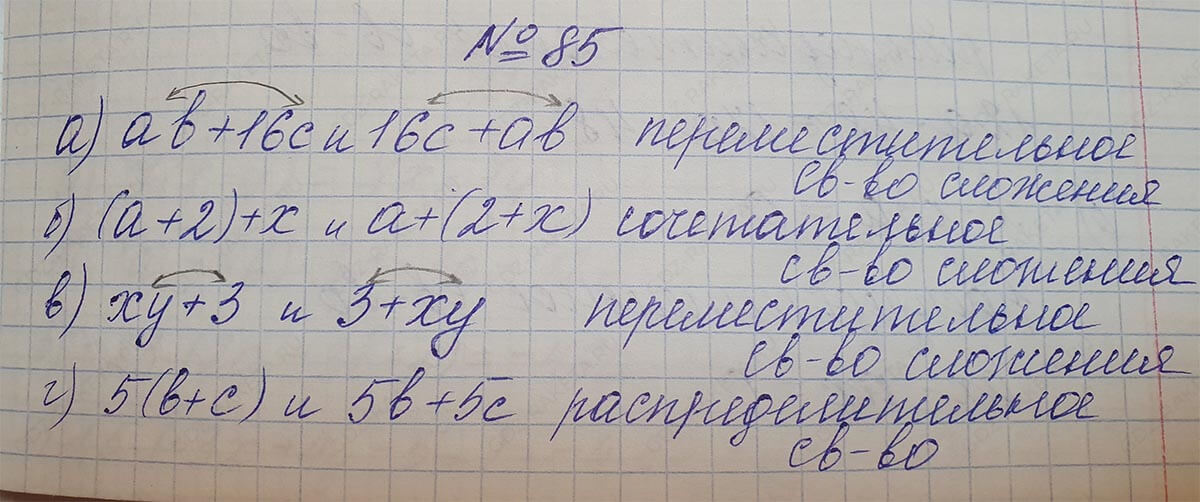 № 85
а) ав+16с и 16с+ав переместительное
св-во сложения
б) (а+2)+х и а+(2+х) сочетательное
св-во сложения
в) ху+3 и 3+ху переместительное
св-во сложения
г) 5(в+с) и 5в+5с распределительное
св-во